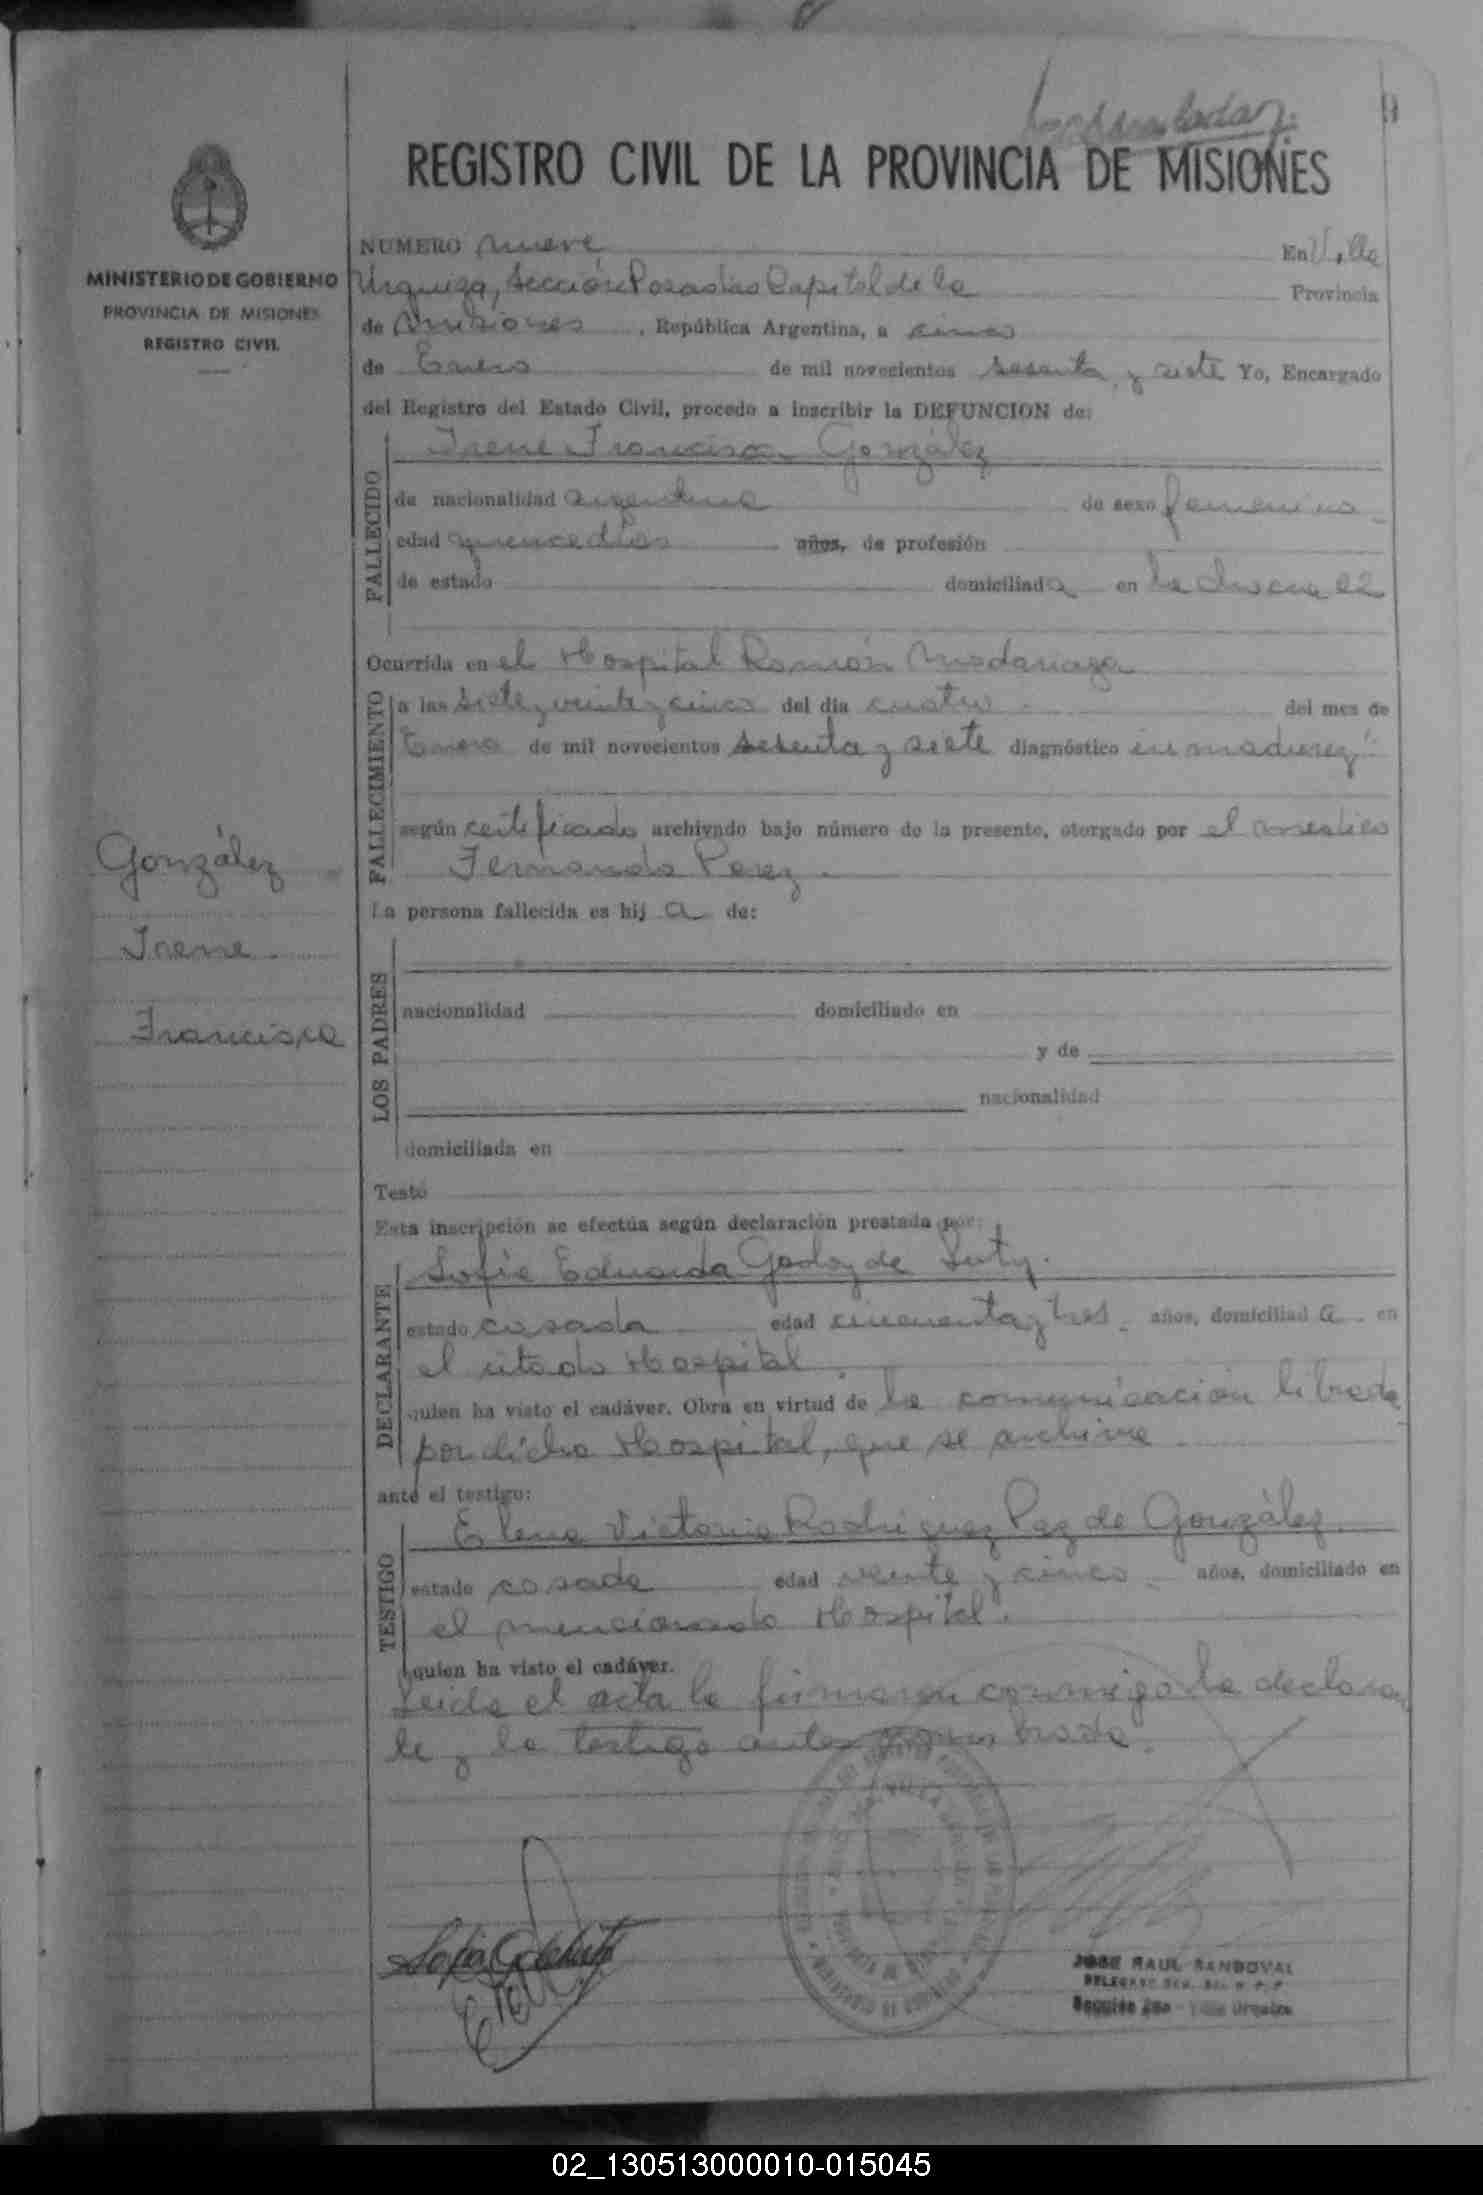 9
REGISTRO CIVIL DE LA PROVINCIA DE MISIONES
MINISTERIO DE GOBIERNO
PROVINCIA DE MISIONES
REGISTRO CIVIL
NUMERO nueve En Villa
Urquiza, Sección Posadas Capital de la Provincia
de Misiones, República Argentina, a cinco
de Enero de mil novecientos sesenta y siete Yo, Encargado
del Registro del Estado Civil, procedo a inscribir la DEFUNCION de:
FALLECIDO
Irene Francisca González
de nacionalidad argentina de sexo femenino
edad quince días años, de profesión
de estado domiciliada en la
Ocurrida en el Hospital Ramón Madariaga
FALLECIMIENTO
a las siete y veinte y cinco del día cuatro del mes de
Enero de mil novecientos sesenta y siete diagnóstico inmadurez
según certificado archivado bajo número de la presente, otorgado por el médico
Fernando Perez.
González
Irene
Francisca
La persona fallecida es hija de:
LOS PADRES
nacionalidad domiciliado en
y de
nacionalidad
domiciliada en
Testó
Esta inscripción se efectúa según declaración prestada por:
DECLARANTE
Sofía Eduarda Godoy de
estado casada edad cincuenta y tres años, domiciliada en
el citado Hospital
quien ha visto el cadáver. Obra en virtud de la comunicación librada
por dicho Hospital, que se archiva
ante el testigo:
TESTIGO
Elena Victoria Rodriguez Paz de González
estado casada edad veinte y cinco años, domiciliado en
el mencionado Hospital.
quien ha visto el cadáver.
Leida el acta la firmaron conmigo la declaran
te y la testigo antes nombrada.
JOSE RAUL SANDOVAL
02_130513000010-015045